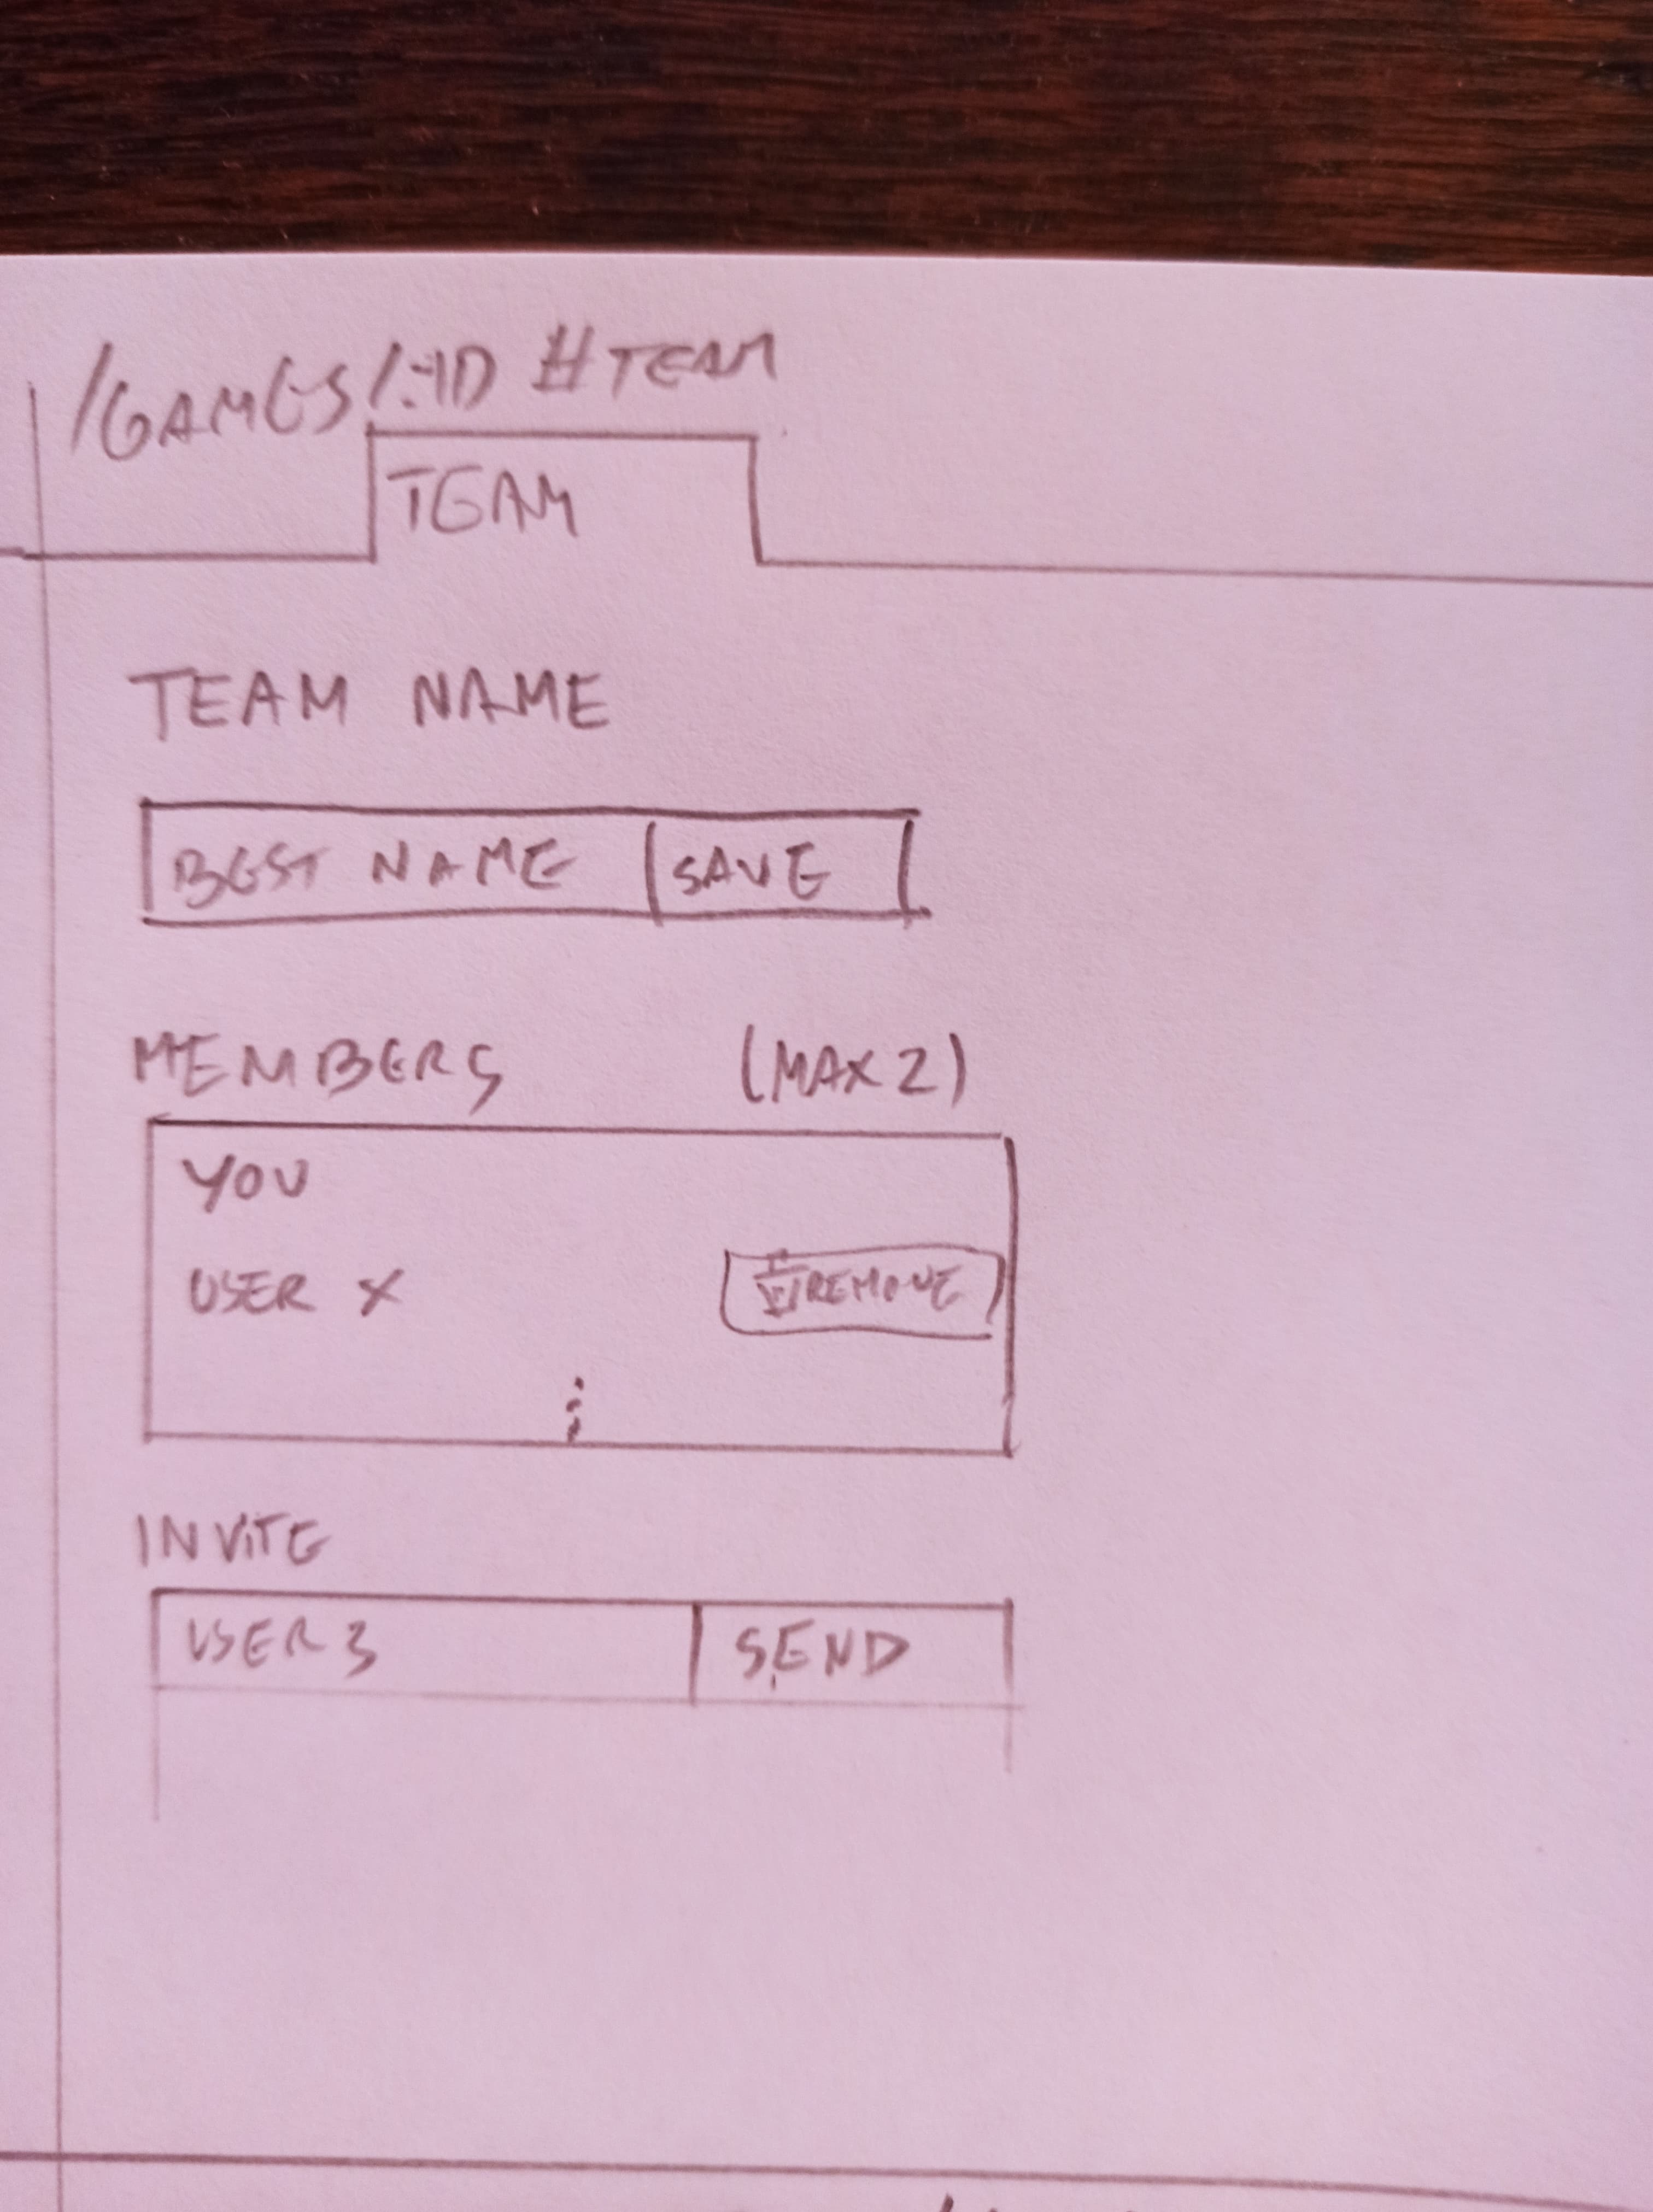 /GAMES/:ID #TEAM
TEAM
TEAM NAME
BEST NAME SAVE
MEMBERS (MAX 2)
YOU
USER X REMOVE
INVITE
USER 3 SEND